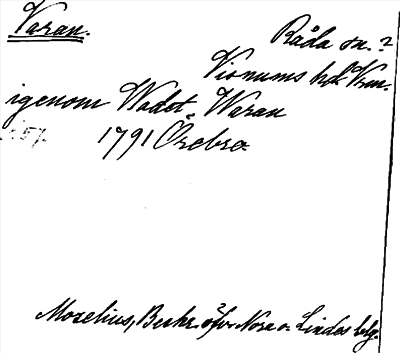 Varan.
Råda sn.?
Visnums hd. Vrm.
igenom Wadet, Waran
1791 Örebro.
Moselius, Beskr. öfv. Nora o. Lindes bslg.